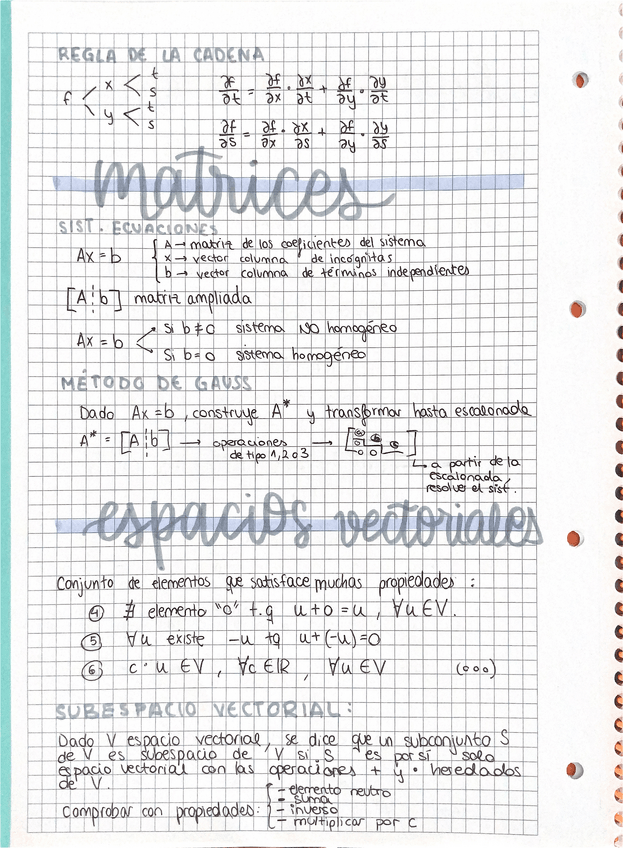 REGLA DE LA CADENA
f < x < t s
y < t s
∂f/∂t = ∂f/∂x · ∂x/∂t + ∂f/∂y · ∂y/∂t
∂f/∂s = ∂f/∂x · ∂x/∂s + ∂f/∂y · ∂y/∂s
matrices
SIST. ECUACIONES
Ax = b { A → matriz de los coeficientes del sistema
x → vector columna de incógnitas
b → vector columna de términos independientes
[A ¦ b] matriz ampliada
Ax = b < Si b ≠ 0 sistema NO homogéneo
Si b = 0 sistema homogéneo
MÉTODO DE GAUSS
Dado Ax = b, construye A* y transformar hasta escalonada
A* = [A ¦ b] → operaciones de tipo 1, 2 o 3 →
↳ a partir de la
escalonada,
resolve el sist.
espacios vectoriales
Conjunto de elementos que satisface muchas propiedades :
④ ∄ elemento "0" t.q u + 0 = u , ∀u ∈ V.
⑤ ∀u existe -u tq u + (-u) = 0
⑥ c · u ∈ V , ∀c ∈ ℝ , ∀u ∈ V (ooo)
SUBESPACIO VECTORIAL:
Dado V espacio vectorial, se dice que un subconjunto S
de V es subespacio de V si S es por sí solo
espacio vectorial con las operaciones + y · heredados
de V.
Comprobar con propiedades: { - elemento neutro
- suma
- inverso
- multiplicar por c